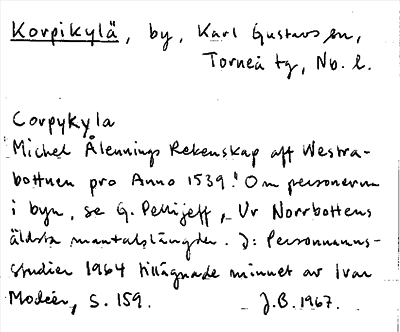 Korpikylä, by, Karl Gustavs sn,
Torneå tg, Nb. l.
Corpykyla
Michel Ålennings Rekenskap aff Westra-
bottnen pro Anno 1539. Om personerna
i byn, se G. Pellijeff, Ur Norrbottens
äldsta mantalslängder. I: Personnamns-
studier 1964 tillägnade minnet av Ivar
Modéer, S. 159. J.B. 1967.